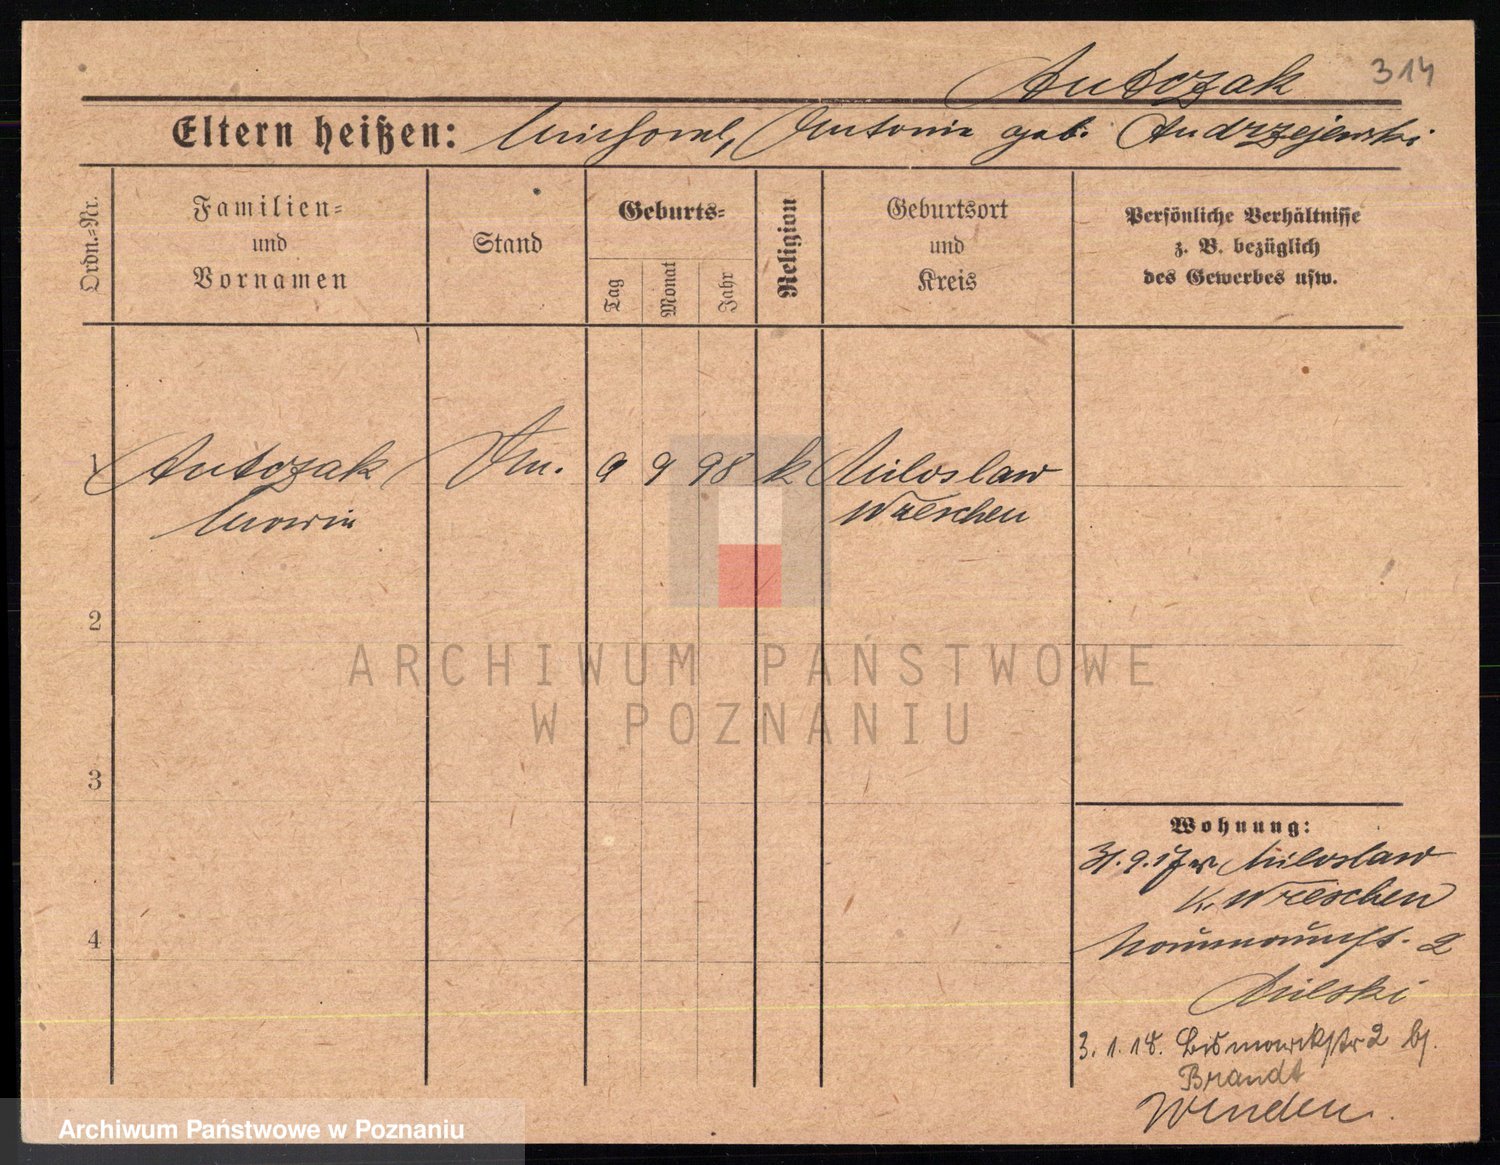 Antczak 314
Eltern heißen: Michael, Antonie geb. Andrzejewski
Ordn.=Nr.
Familien=
und
Vornamen
Stand
Geburts=
Tag
Monat
Jahr
Religion
Geburtsort
und
Kreis
Persönliche Verhältnisse
z. B. bezüglich
des Gewerbes usw.
1 Antczak 9 9 98 k Miloslaw
Maria Wreschen
2
3
4
Wohnung:
Miloslaw
K. Wreschen
2
Milski
3. 1. 18. Bismarckstr 2 bj.
Brandt
ARCHIWUM PAŃSTWOWE
W POZNANIU
Archiwum Państwowe w Poznaniu